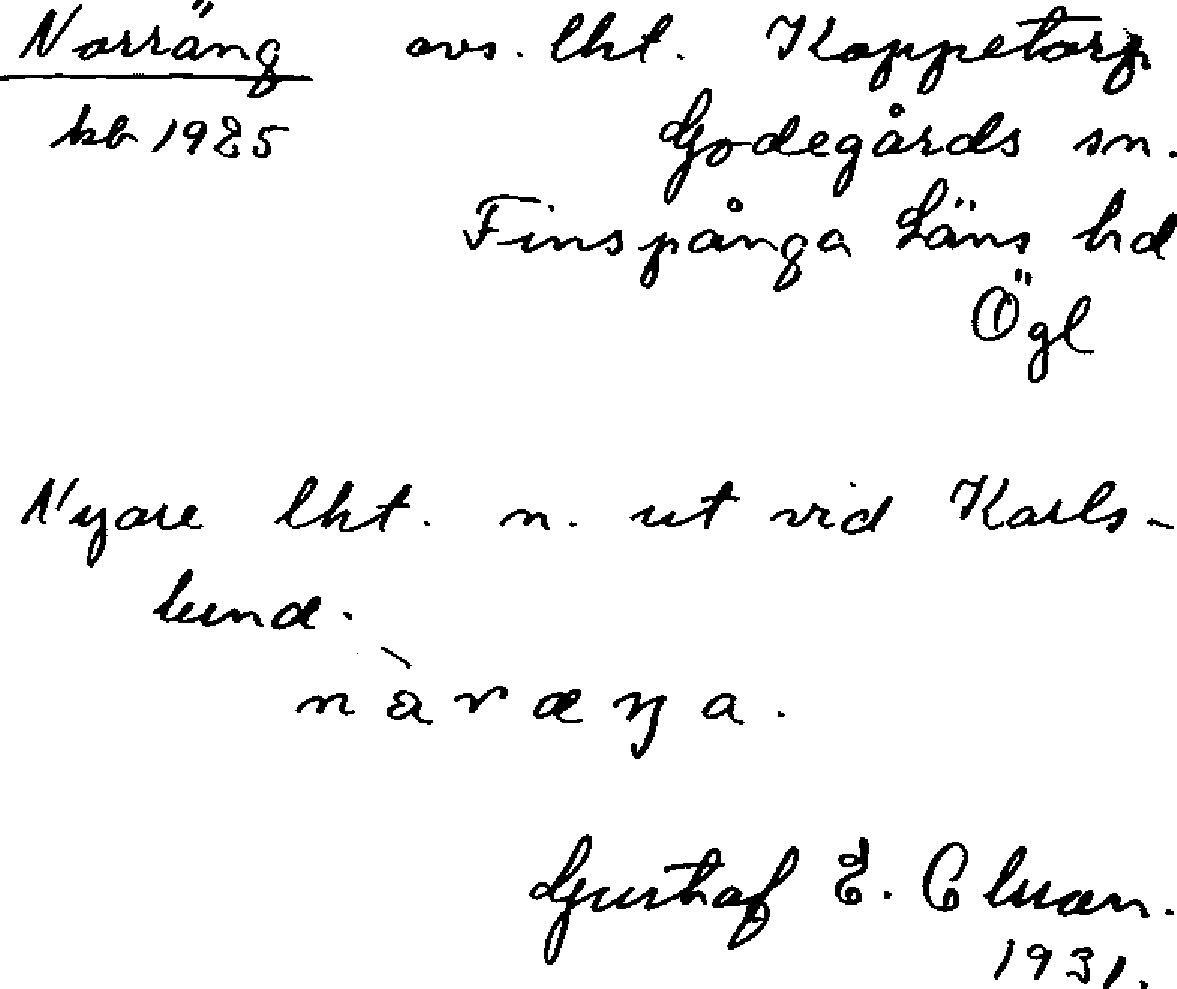 Norräng avs. lht. Koppetorp
kb 1925 Godegårds sn.
Finspånga Läns hd
Ögl
Nyare lht. n. ut vid Karls-
lund.
nàræŋa.
Gustaf E.
1931.